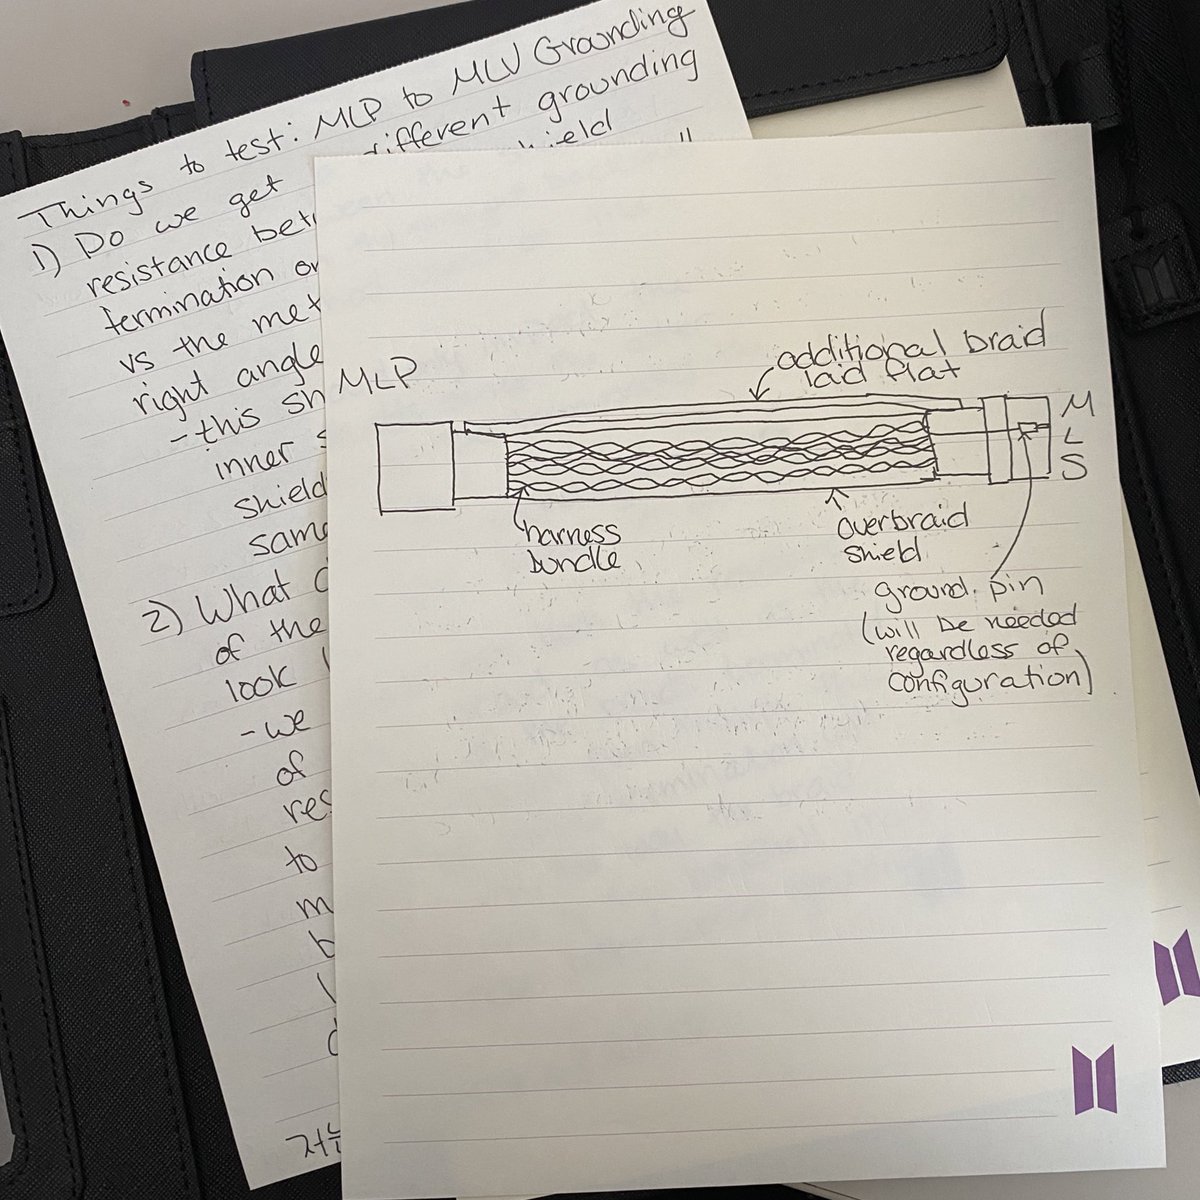 Things to test: MLP to MLV Grounding
1) Do we get different grounding
resistance betw shield
termination or
vs the met
right angle
- this sh
inner s
shield
same
2) What d
of the
look l
- we
of
res
to
m
b
l
d
MLP
additional braid
laid flat
M
L
S
harness
bundle
overbraid
shield
ground pin
(will be needed
regardless of
configuration)